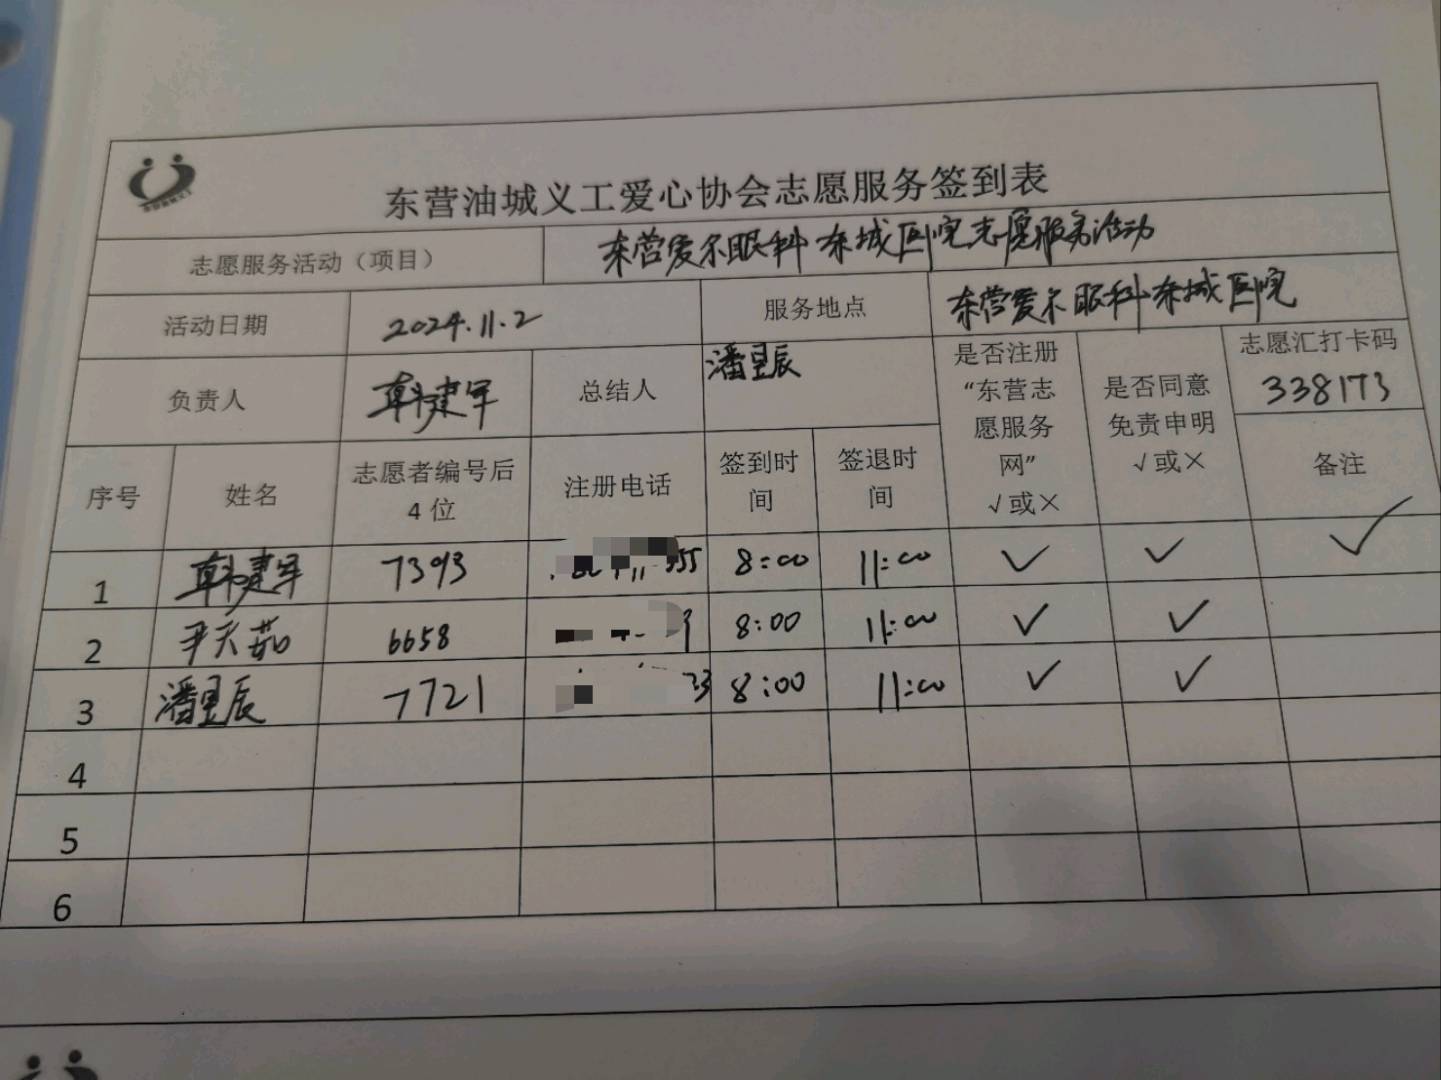 东营油城义工爱心协会志愿服务签到表
志愿服务活动（项目） 东营爱尔眼科东城医院志愿服务活动
活动日期 2024.11.2 服务地点 东营爱尔眼科东城医院
负责人 韩建军 总结人 潘昱辰 是否注册“东营志愿服务网”√或× 是否同意免责申明√或× 志愿汇打卡码 338173
序号 姓名 志愿者编号后4位 注册电话 签到时间 签退时间 备注
1 韩建军 7393 8:00 11:00 ✓ ✓ ✓
2 尹天茹 6658 8:00 11:00 ✓ ✓
3 潘昱辰 7721 33 8:00 11:00 ✓ ✓
4
5
6